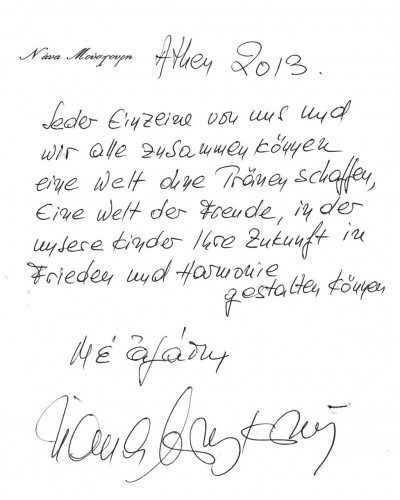 Νάνα Μούσχουρη
Athen 2013.
Jeder Einzelne von uns und
wir alle zusammen können
eine Welt ohne Tränen schaffen,
Eine Welt der Freude, in der
unsere Kinder Ihre Zukunft in
Frieden und Harmonie
gestalten können
Μέ ἀγάπη